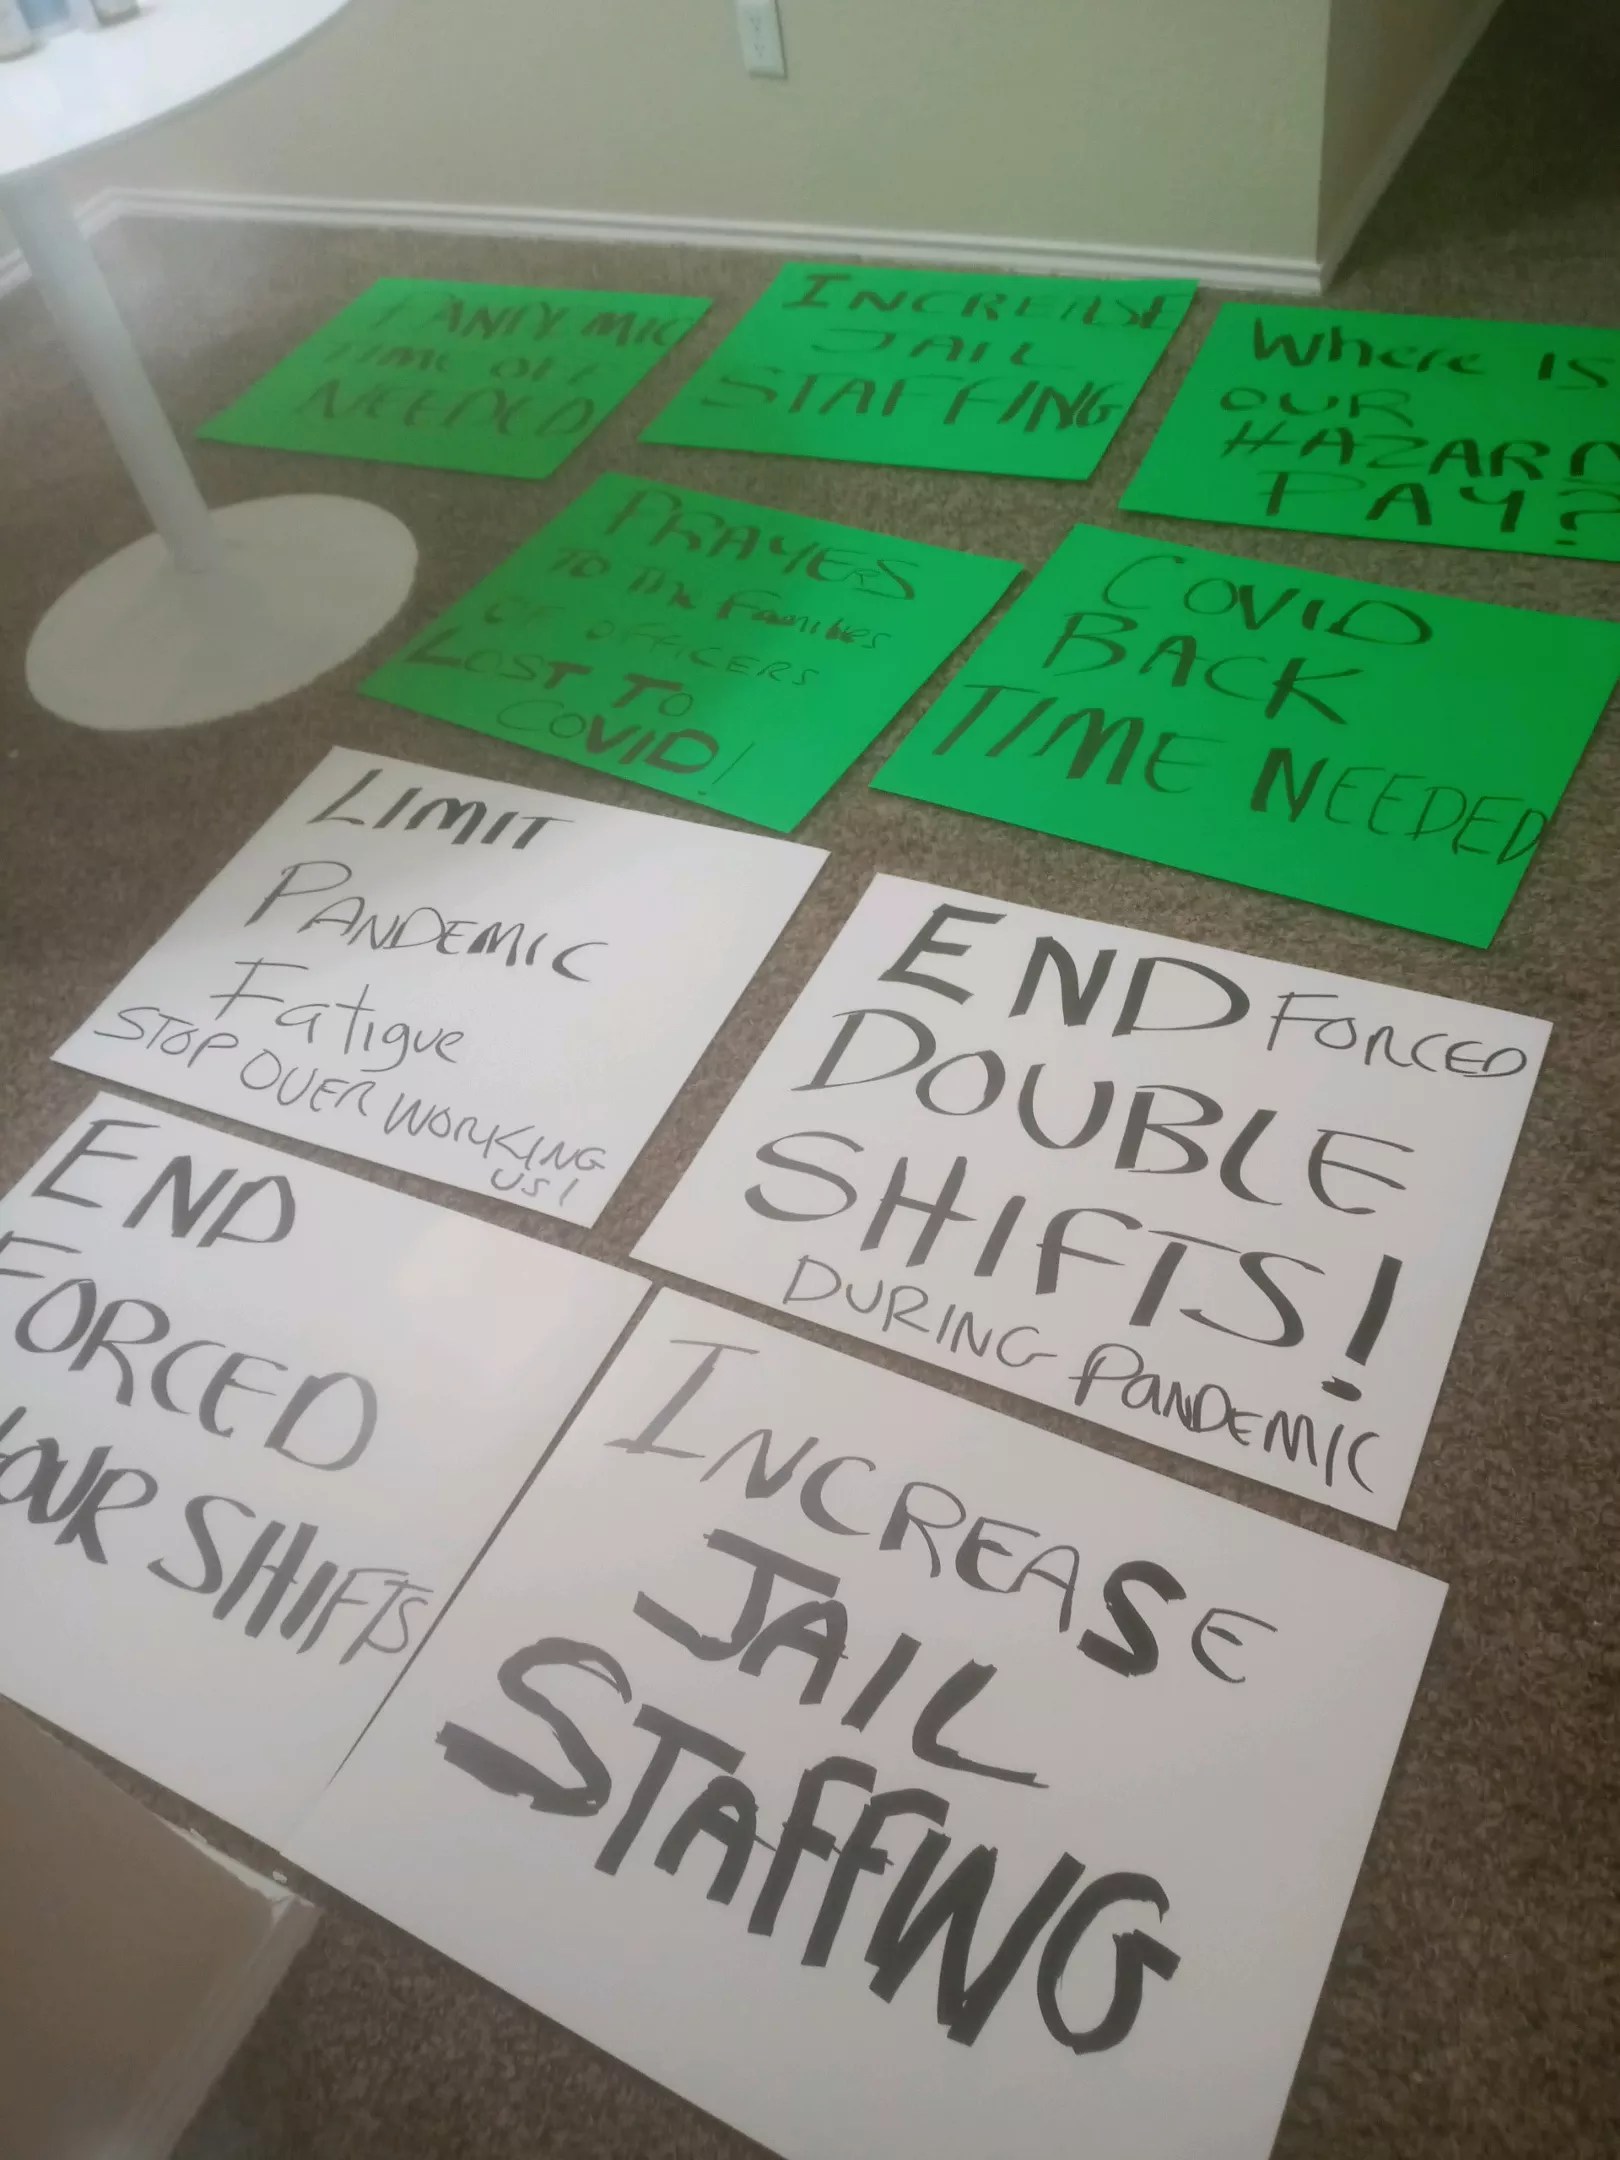 TIME OFF
NEEDED
INCREASE
JAIL
STAFFING
Where IS
OUR
HAZARD
PAY?
PRAYERS
TO The Families
OF OFFICERS
LOST TO
COVID!
COVID
BACK
TIME NEEDED
LIMIT
PANDEMIC
Fatigue
STOP OVER WORKING
US!
END FORCED
DOUBLE
SHIFTS!
DURING PANDEMIC
END
FORCED
SHIFTS
INCREASE
JAIL
STAFFING